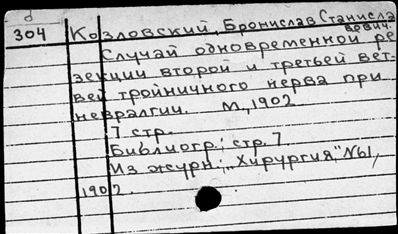 304 Козловский, Бронислав Станисла
вович.
Случай одновременной ре
зекции второй и третьей вет-
вей тройничного нерва при
невралгии. М., 1902
7 стр.
Библиогр.: стр. 7
Из журн.: "Хирургия," №1,
1902.